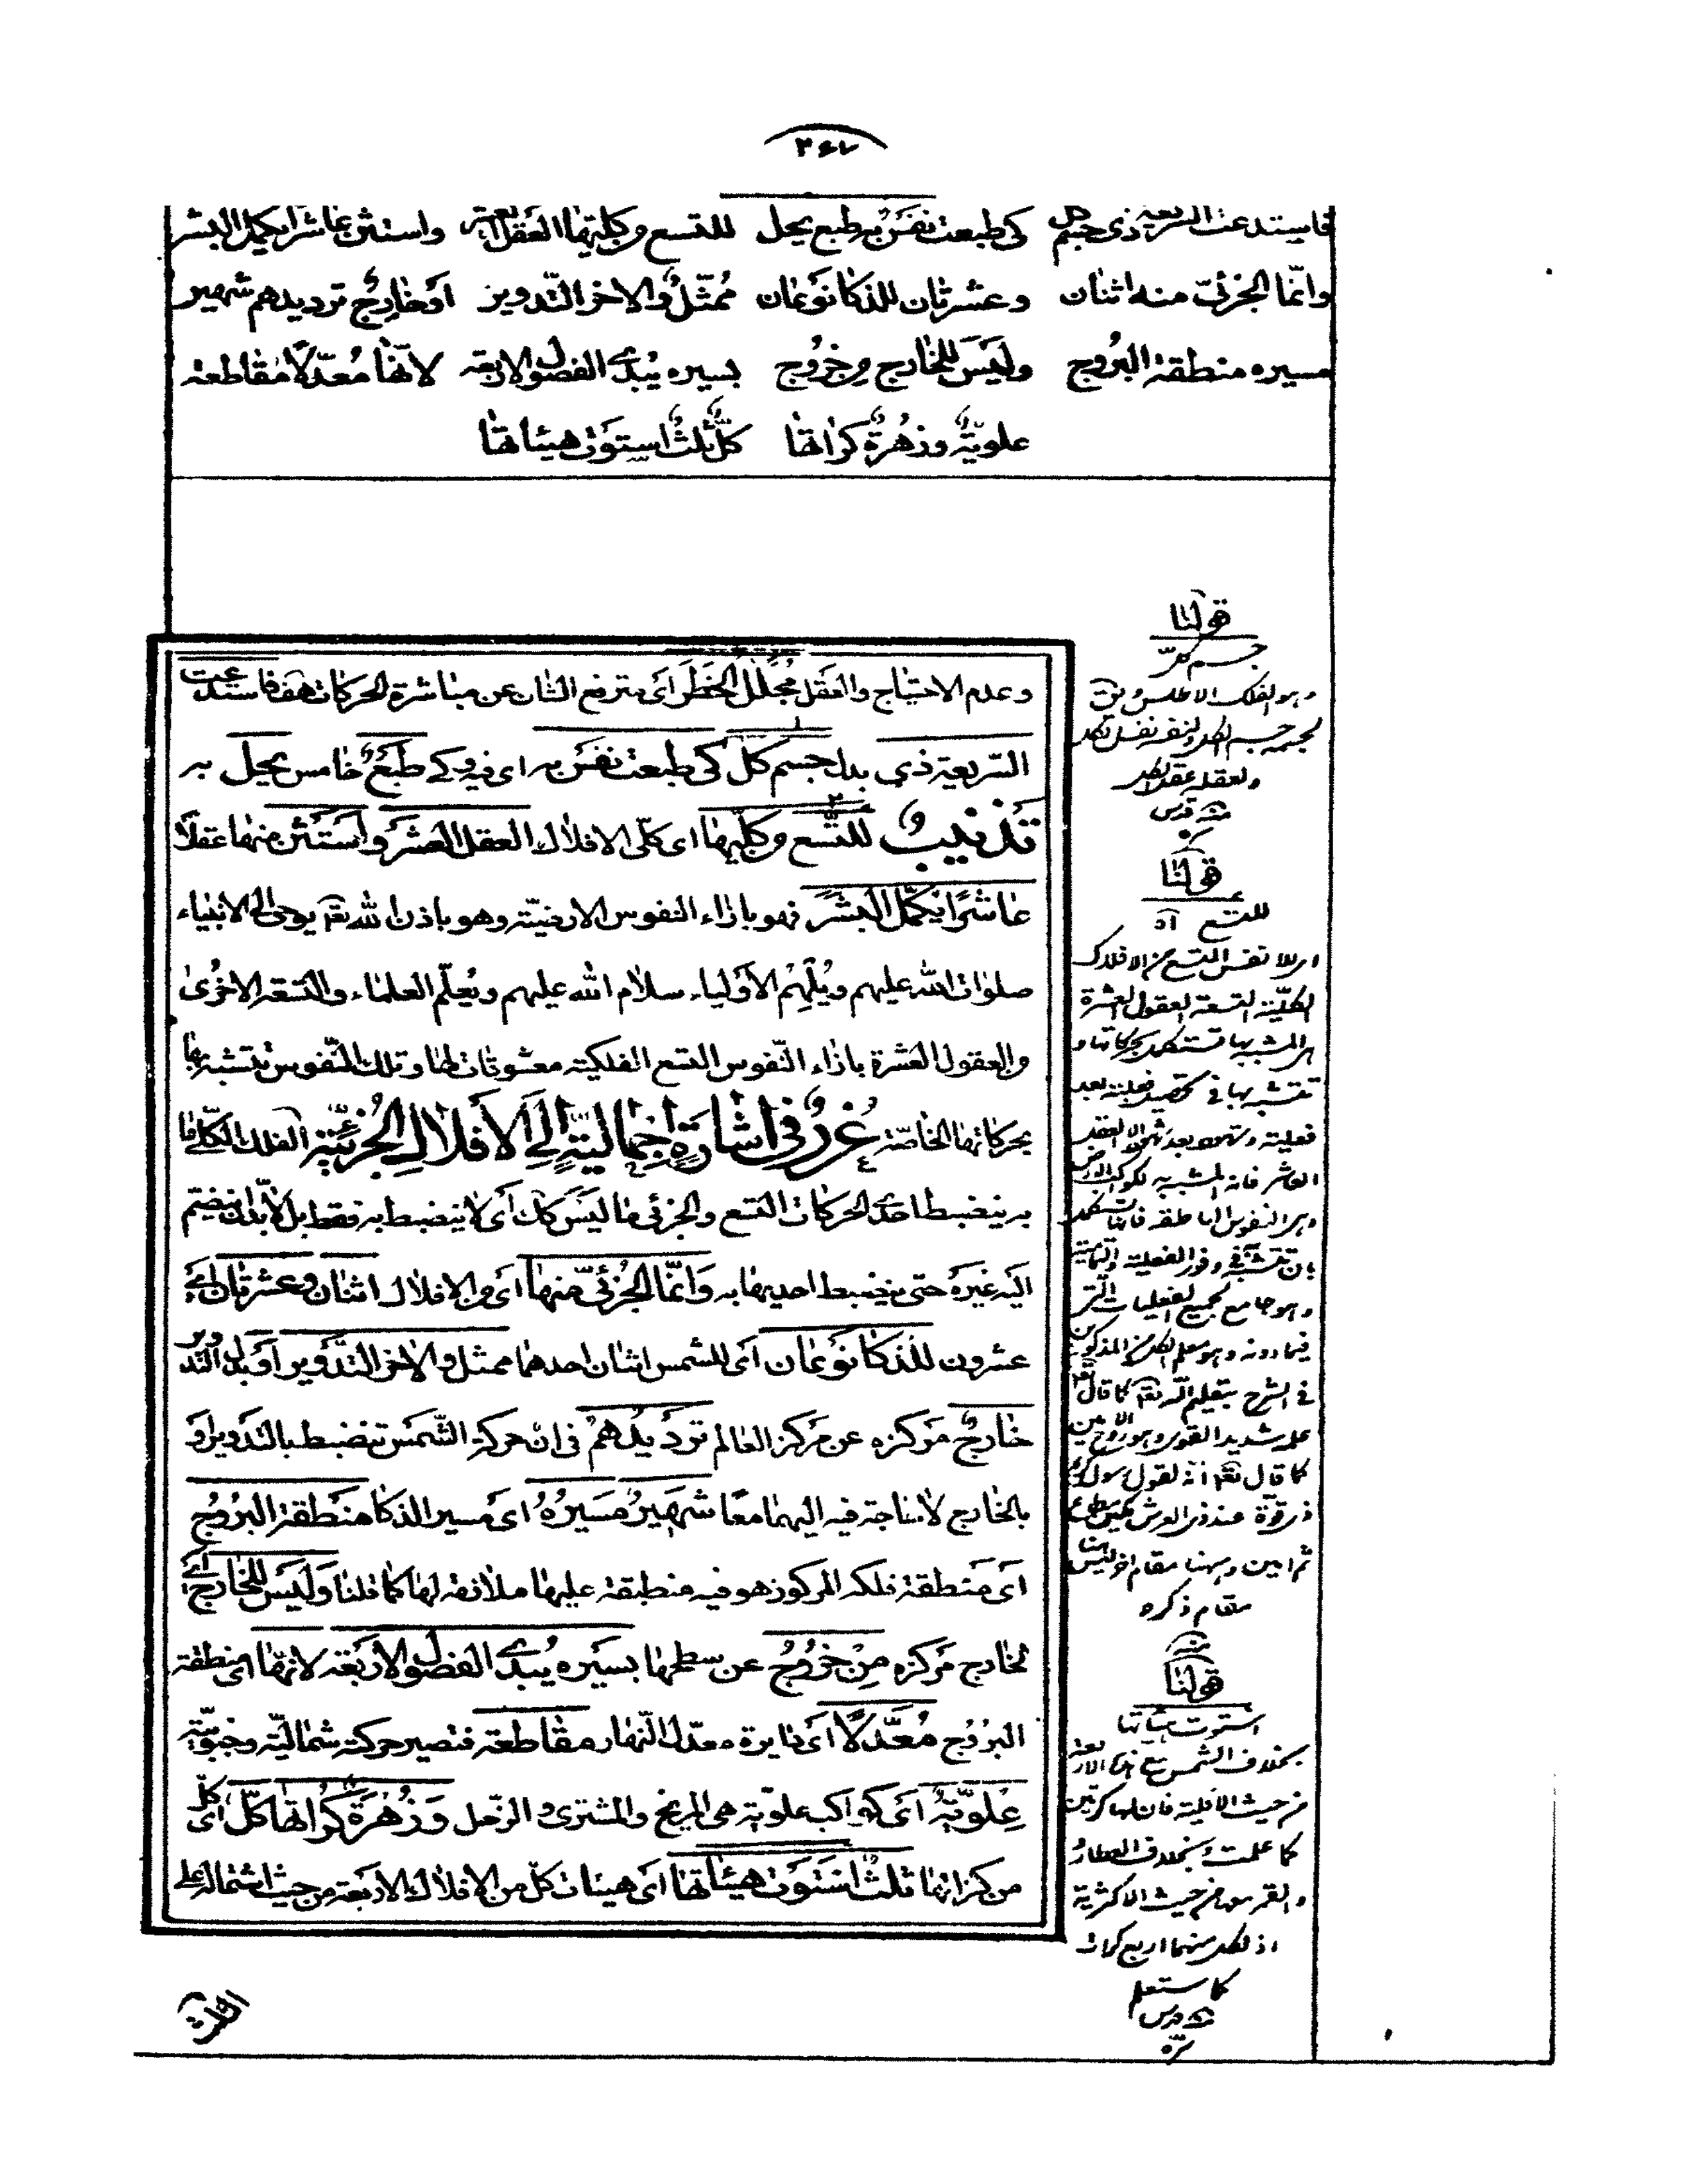 ٢٦٧
فاستدعت السريعة ذي جسم كل كي طبعت نفس به طبع يحل للتسع وكليتها العقل العشر واستثن عاشرا يكمل البشر
وانما الجزئي منه اثنان وعشرتان للذكا نوعان ممثل والاخر التدوير او خارج ترديدهم شهير
مسيره منطقة البروج وليس للخارج من خروج بسيره يبدى الفصول الاربعة لانها معدلا مقاطعة
علوية وزهرة كراتها كل ثلث استوت هيئاتها
وعدم الاحتياج والعقل مجلل الخطر اى مترفع الشان عن مباشرة الحركات هف فاستدعت
السريعة ذي بدل جسم كل كي طبعت نفس به اى فيه وكي طبع خامس يحل به
تذنيب للتسع وكليتها اى كلى الافلاك العقل العشر واستثن منها عقلا
عاشرا يكمل البشر فهو بازاء النفوس الارضية وهو باذن الله تعم يوحى الى الانبياء
صلوات الله عليهم ويلهم الاولياء سلام الله عليهم ويعلم العلماء والتسعة الاخرى
والعقول العشرة بازاء النفوس التسع الفلكية معشوقات لها وتلك النفوس تتشبه بها
بحركاتها الخاصة غرر في اشارة اجمالية الى الافلاك الجزئية الفلك الكلى ما
به ينضبط احدى الحركات التسع والجزئى ما ليس كك اى لا ينضبط به فقط بل لابد ان ينضم
اليه غيره حتى ينضبط احديها به وانما الجزئى منها اى من الافلاك اثنان وعشرتان اى
عشرون للذكا نوعان اى للشمس اثنان احدهما ممثل والاخر التدوير او بدل التدوير
خارج مركزه عن مركز العالم ترديدهم في ان حركة الشمس تنضبط بالتدوير او
بالخارج لا بحاجة فيه اليهما معا شهير مسيره اى مسير الذكا منطقة البروج
اى منطقة فلكه المركوز هو فيه منطبقة عليها ملازمة لها كما قلنا وليس للخارج اى
لخارج مركزه من خروج عن سطحها بسيره يبدى الفصول الاربعة لانها اى منطقة
البروج معدلا اى دايرة معدل النهار مقاطعة فتصير حركته شمالية وجنوبية
علوية اى كواكب علوية هى المريخ والمشترى والزحل وزهرة كراتها كل اى كل
من كراتها ثلث استوت هيئاتها اى هيئات كل من الافلاك الاربعة من حيث اشتماله على
الثلث
قولنا
جسم كل
وهو الفلك الاطلس ويق
لجسمه جسم الكل ولنفسه نفس الكل
ولعقله عقل الكل
منه قدس
سره
قولنا
للتسع آه
اى للانفس التسع من الافلاك
الكلية التسعة العقول العشرة
هى المشبه بها تستكمل بحركاتها و
تتشبه بها في تحصيل فعلية بعد
فعلية
العاشر فانه المشبه به
وهى النفوس الناطقة فانها تستكمل
وهو جامع لجميع الفعليات التى
فيما دونه وهو معلم الكل من المذكورين
في الشرح بتعليم الله تعم كما قال تعم
علمه شديد القوى وهو الروح الامين
كما قال تعم انه لقول رسول كريم
ذى قوة عند ذى العرش مكين مطاع
ثم امين وههنا مقام اخر ليس هنا
مقام ذكره
منه
قولنا
استوت هيئاتها
بخلاف الشمس مع هذه الاربعة
من حيث الاقلية فان لها كرتين
كما علمت وبخلاف العطارد
والقمر معها من حيث الاكثرية
اذ لكل منهما اربع كرات
كما ستعلم
منه قدس
سره